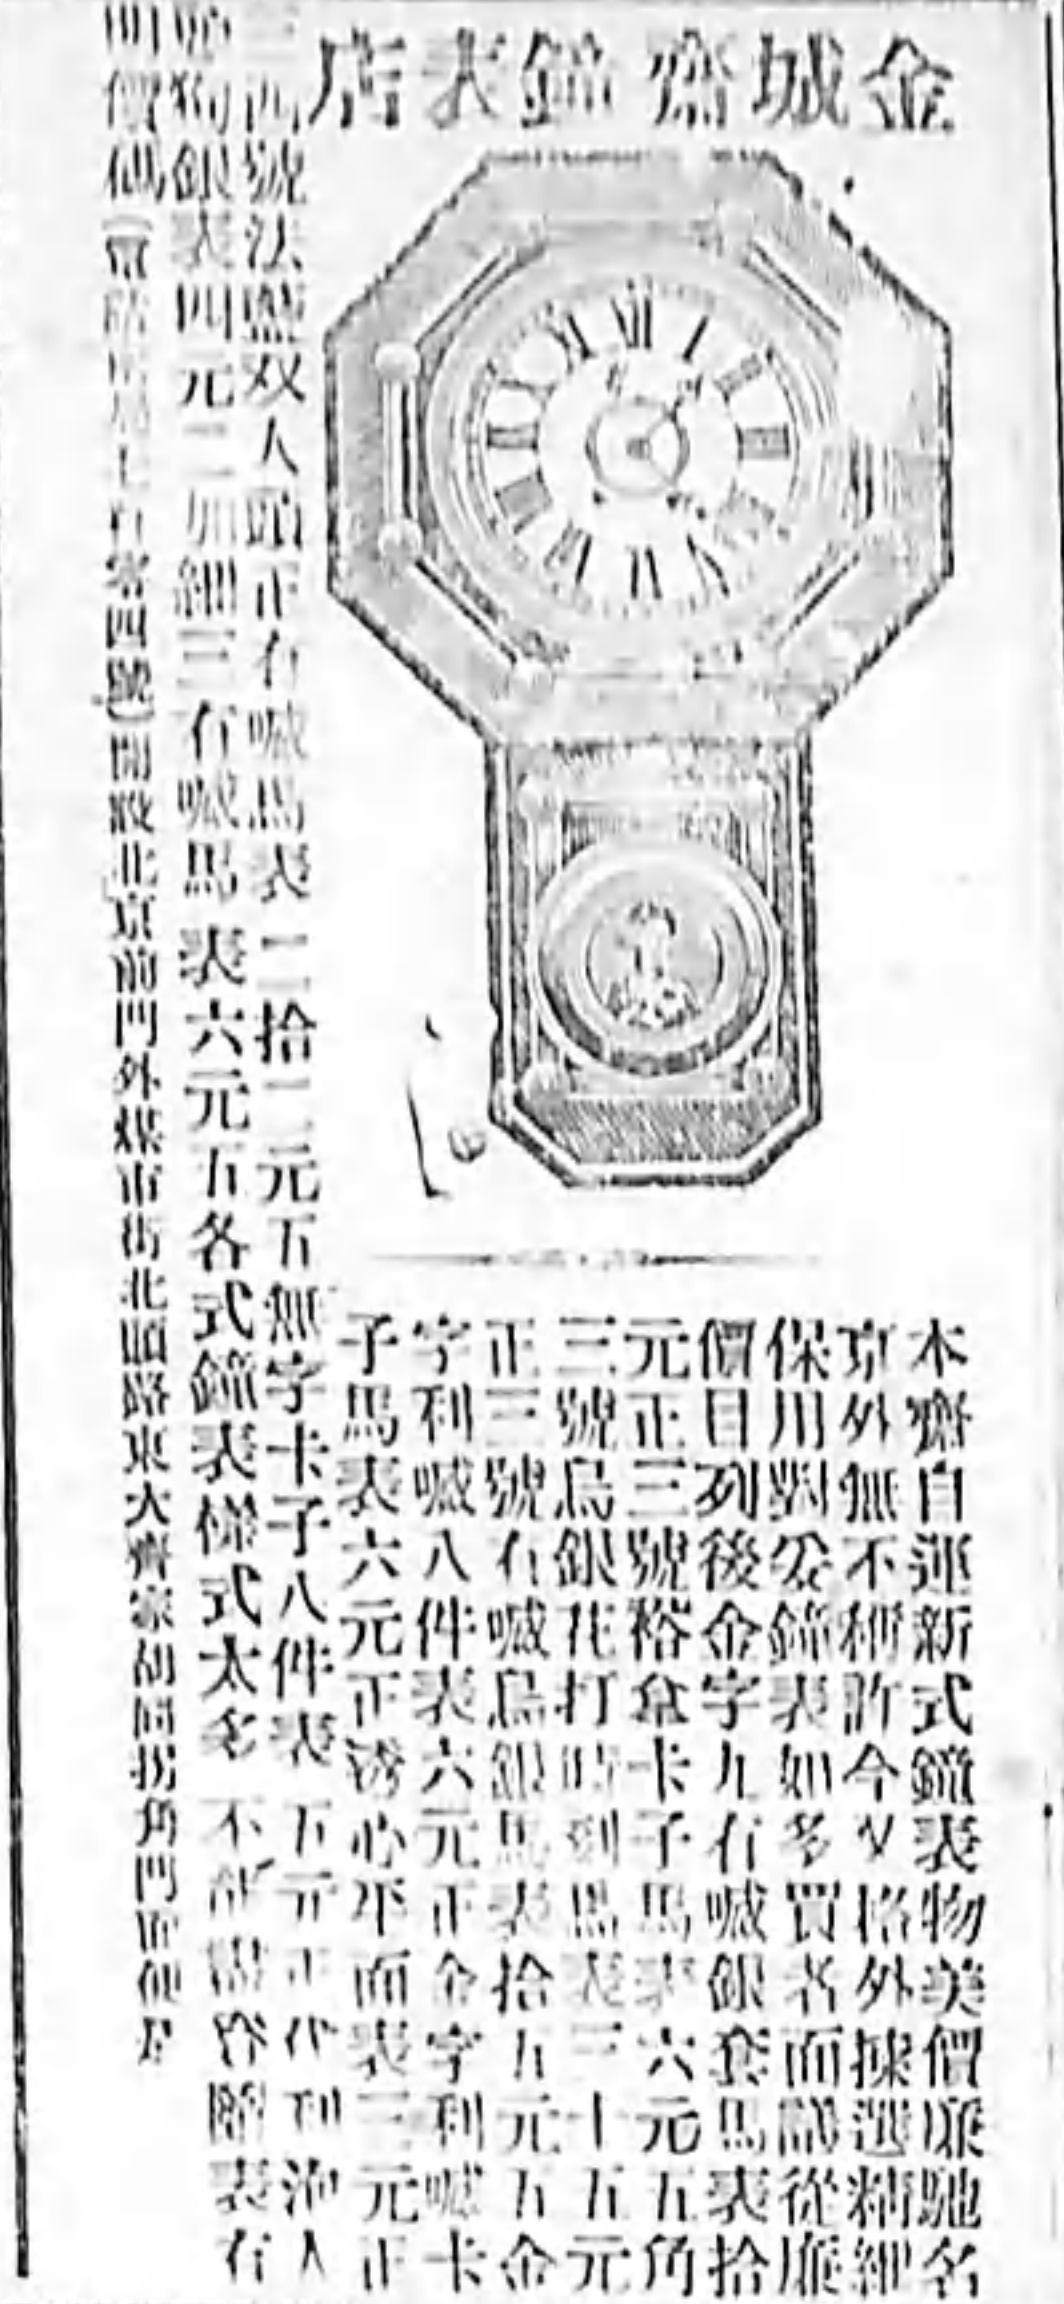 金城齋鐘表店
本齋自運新式鐘表物美價廉馳名
京外無不稱許今又格外揀選精細
保用對爺鐘表如多買者面議從廉
價目列後金字九右喊銀套馬表拾
元正三號裕盒卡子馬表六元五角
三號烏銀花打時刻馬表三十五元
正三號右喊烏銀馬表拾五元五金
字利喊八件表六元正金字利喊卡
子馬表六元正透心平面表三元正
三西號法藍双人頭正右喊馬表二拾二元五無字卡子八件表五元正代利洵人
頭狗銀表四元二加細三右喊馬表六元五各式鐘表樣式太多不能盡容階表右
明價碼(電話局上右零四號)開設北京前門外煤市街北頭路東大齊家胡同拐角門面便是